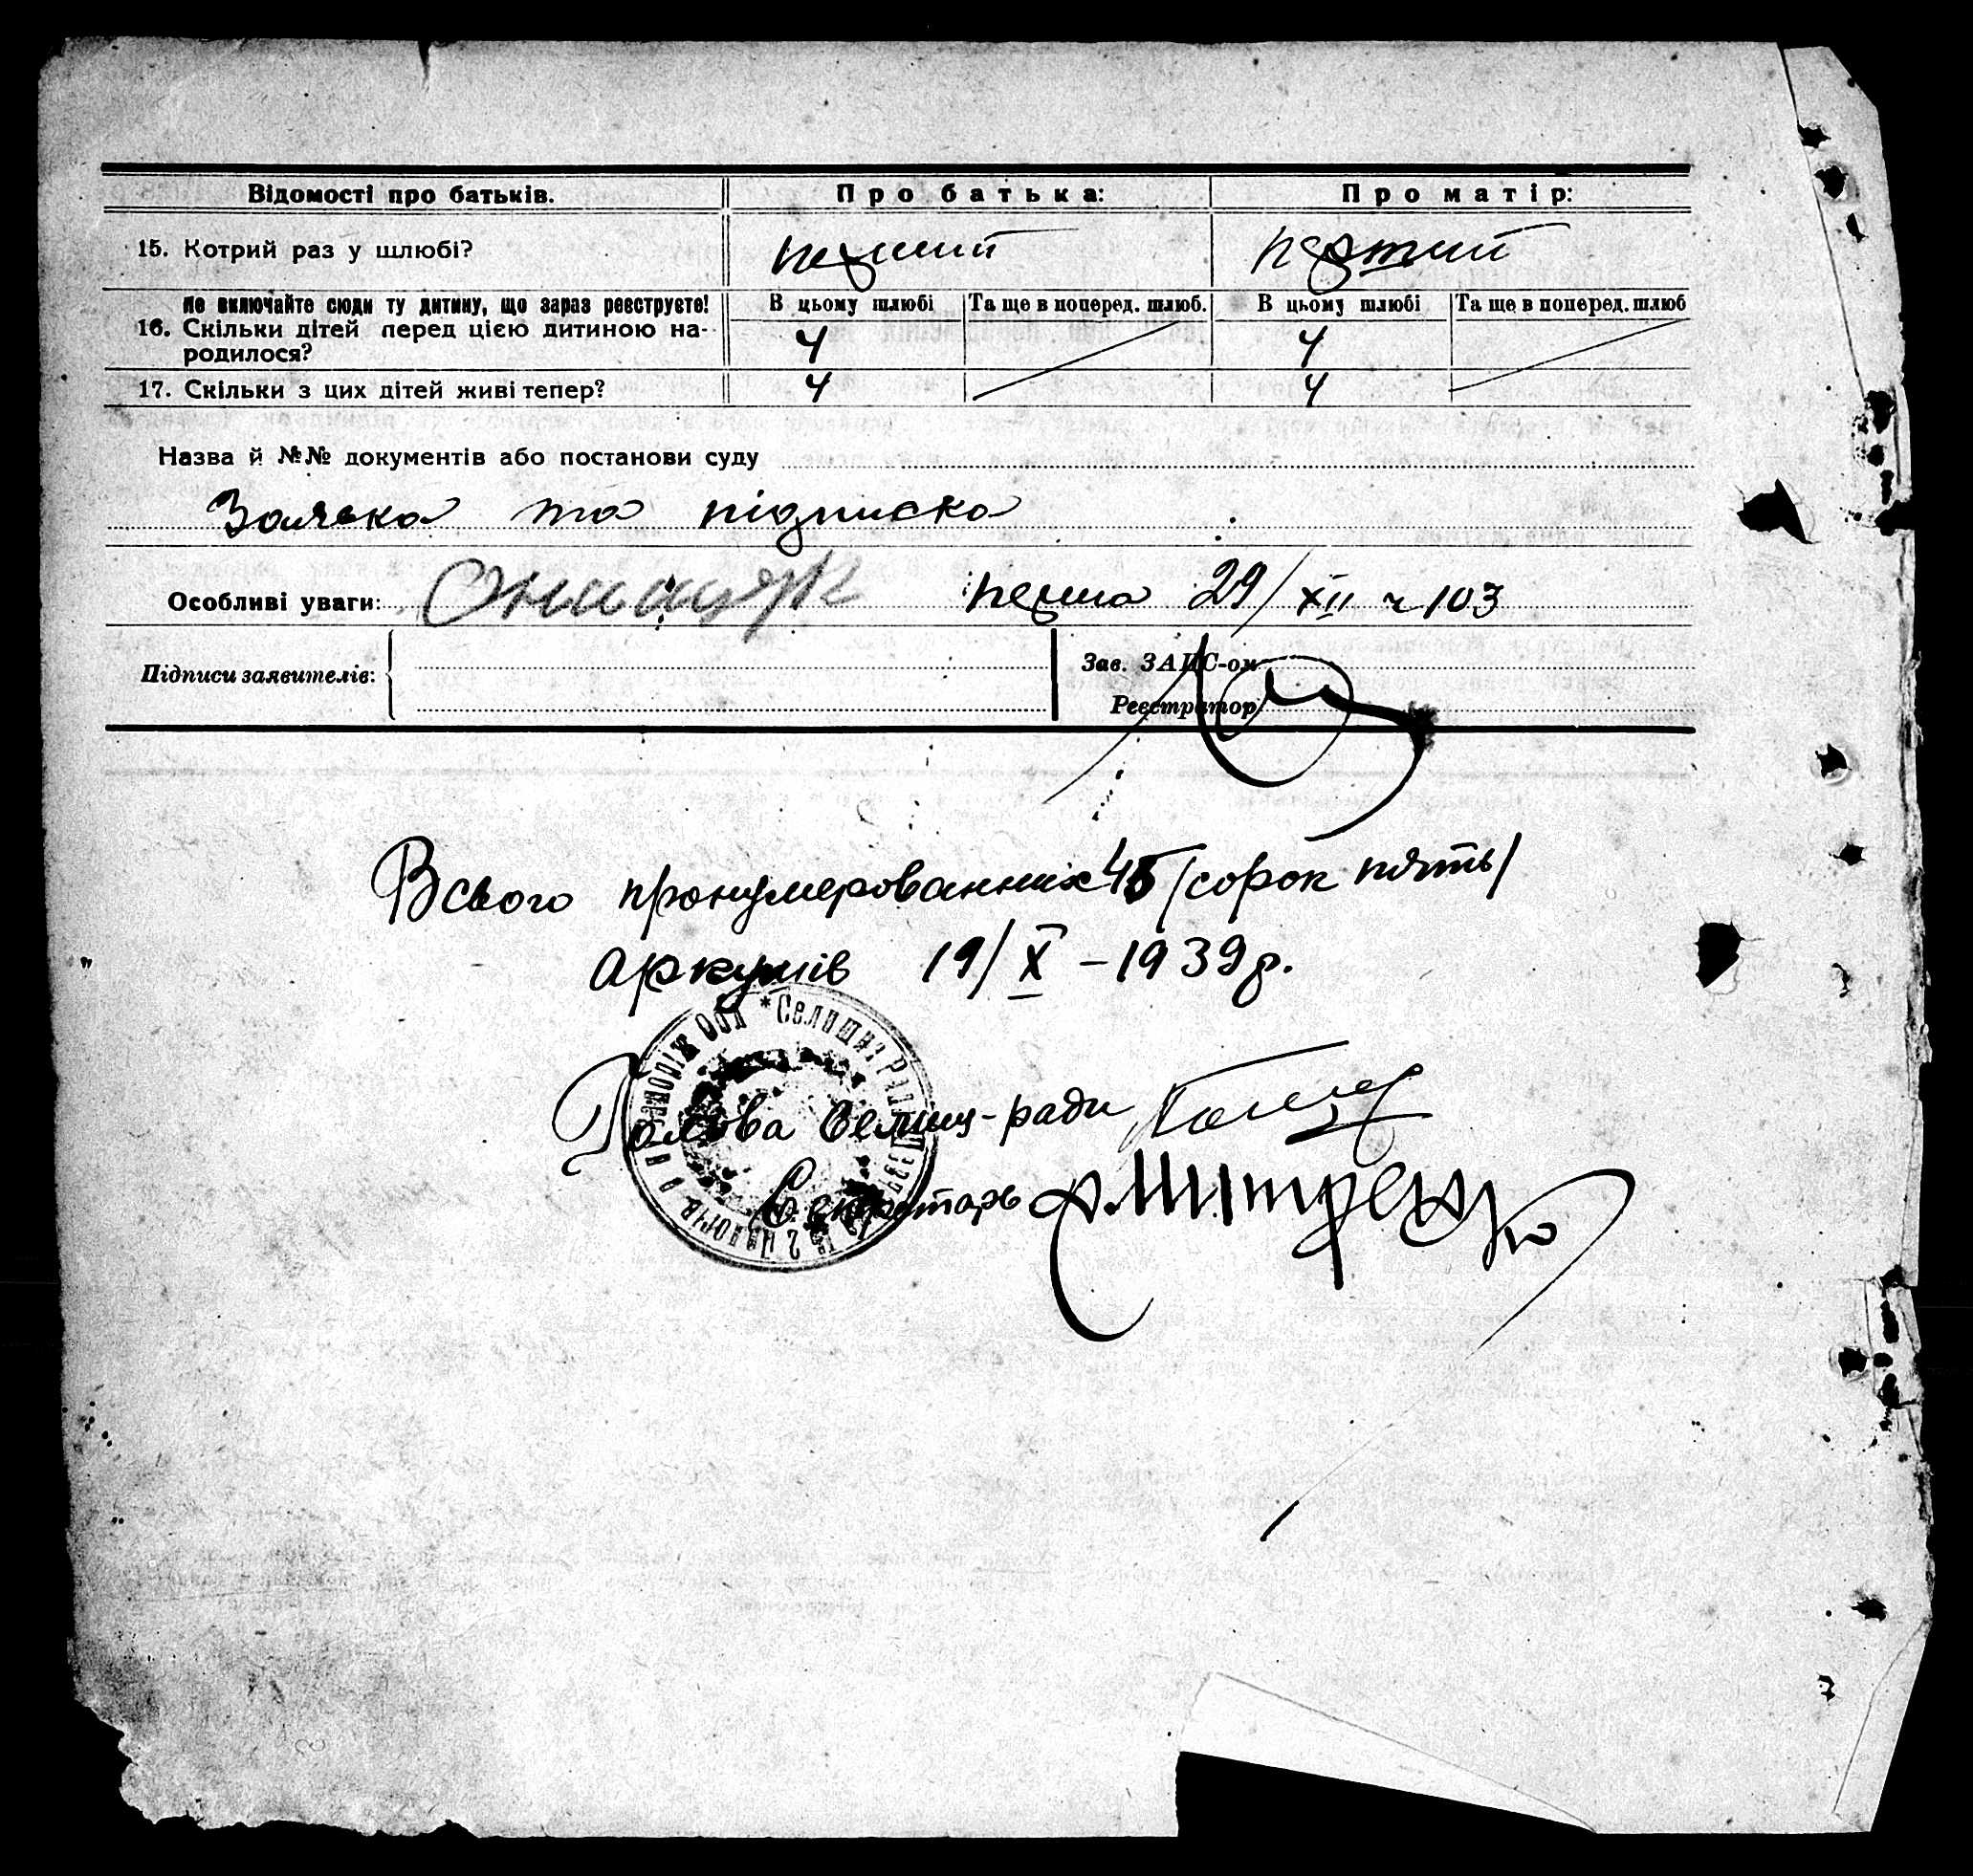 Відомості про батьків. Про батька: Про матір:
15. Котрий раз у шлюбі? перший перший
Не включайте сюди ту дитину, що зараз реєструєте! В цьому шлюбі Та ще в поперед. шлюб. В цьому шлюбі Та ще в поперед. шлюб
16. Скільки дітей перед цією дитиною на-
родилося? 4 4
17. Скільки з цих дітей живі тепер? 4 4
Назва й №№ документів або постанови суду
Заявка та підписка
Особливі уваги: 29/XII 103
Підписи заявителів: Зав. ЗАПС-ом
Реєстратор
Всього пронумерованних 45 /сорок пять/
аркушів 19/X – 1939 р.
Голова Селищ-ради
Секретарь